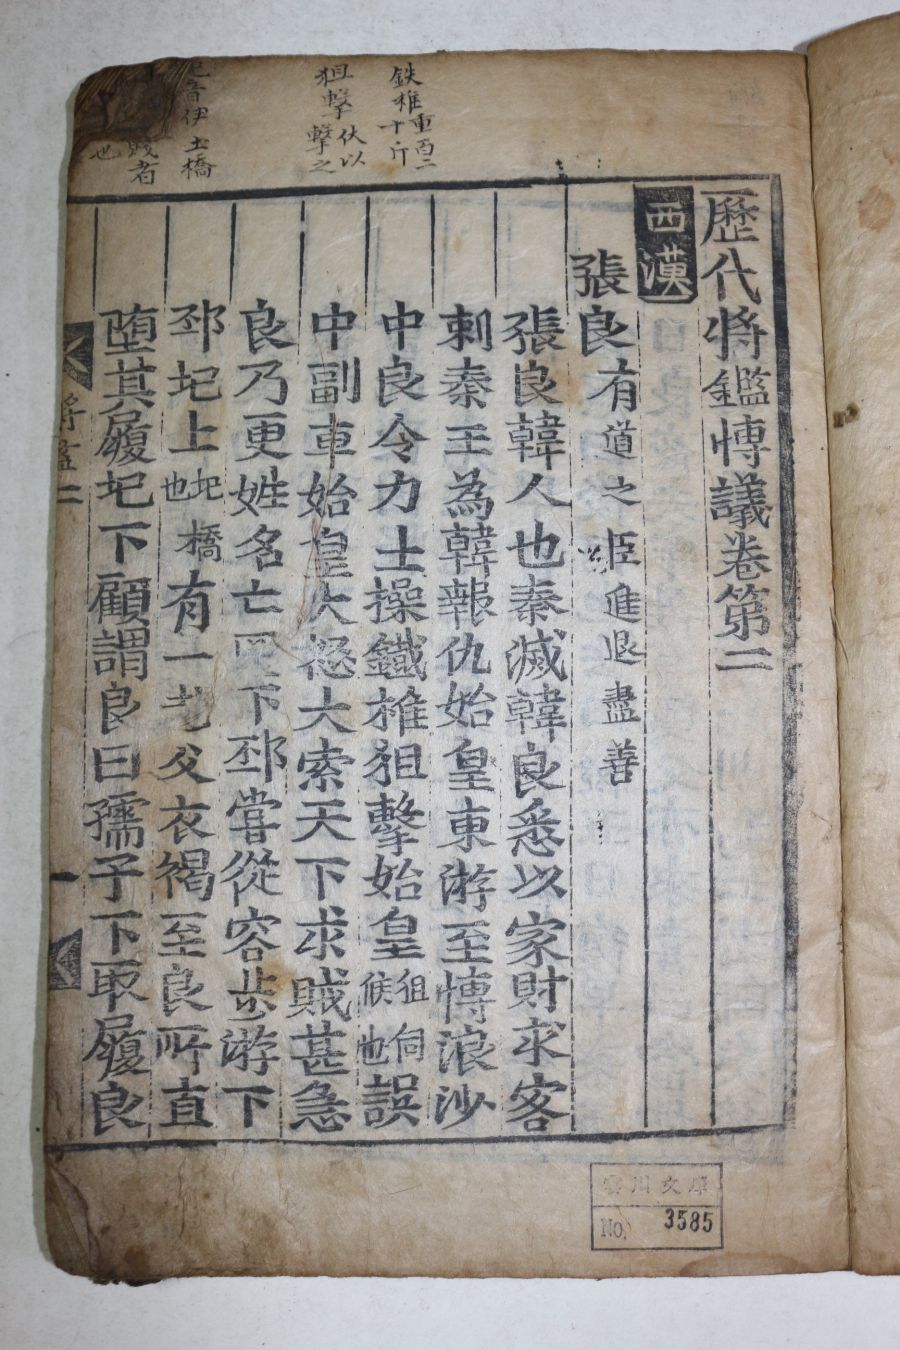 歷代將鑑博議卷第二
西漢
張良 有道之臣進退盡善
張良韓人也秦滅韓良悉以家財求客
刺秦王為韓報仇始皇東游至博浪沙
中良令力士操鐵椎狙擊始皇 狙伺候也 誤
中副車始皇大怒大索天下求賊甚急
良乃更姓名亡匿下邳嘗從容步游下
邳圯上 圯橋也 有一老父衣褐至良所直
墮其履圯下顧謂良曰孺子下取履良
將鑑二
一
鉄椎重百二十斤
狙擊 伏以擊之
圯音伊土橋
賤者
也
文庫
No. 3585